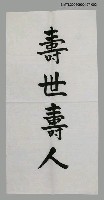 壽世壽人